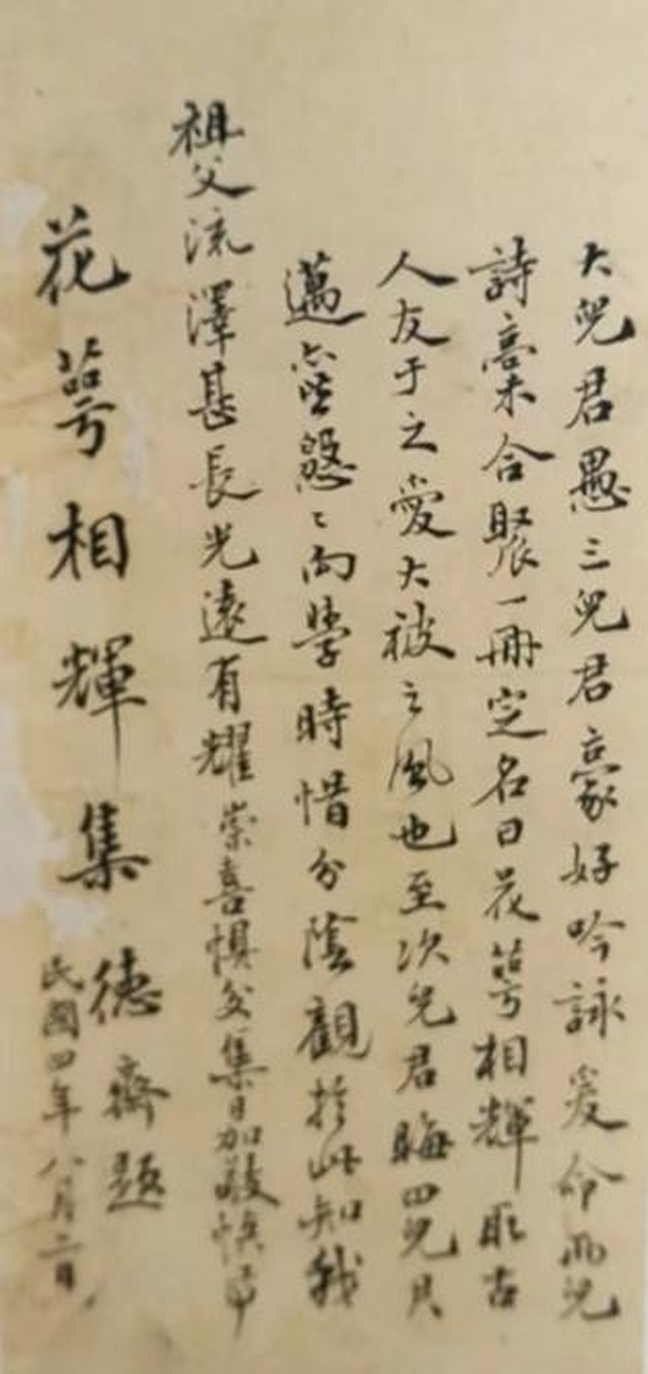 大兒君愚三兒君豪好吟詠爰命兩兒
詩稾合裝一冊定名曰花萼相輝取古
人友于之愛大被之風也至次兒君晦四兒
邁亦皆慇〻向學時惜分陰觀於此知我
祖父流澤甚長光遠有耀崇喜懼交集日加敬慎
花萼相輝集
德齋題
民國四年八月二日